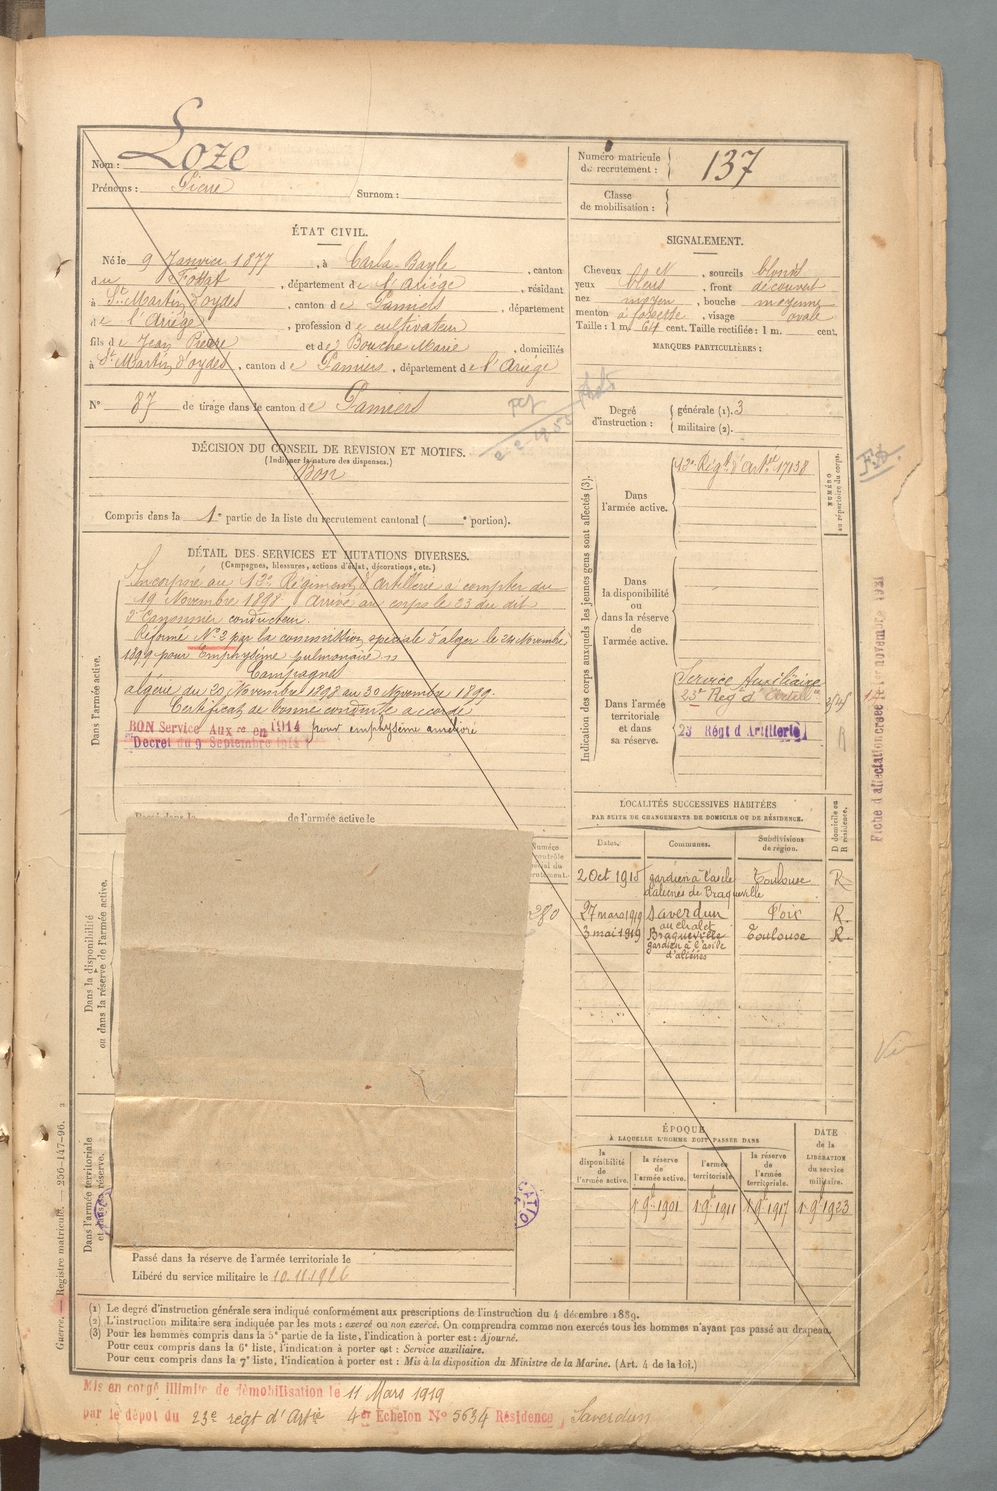 Nom : Loze
Prénoms : Pierre Surnom :
Numéro matricule de recrutement : 137
Classe de mobilisation :
ÉTAT CIVIL.
Né le 9 Janvier 1877, à Carla-Bayle, canton
du Fossat, département de l'Ariège, résidant
à St. Martin d'oydes, canton de Pamiers, département
de l'Ariège, profession de cultivateur
fils de Jean Pierre et de Bouche Marie, domiciliés
à St Martin d'oydes, canton de Pamiers, département de l'Ariège
N° 87 de tirage dans le canton de Pamiers
SIGNALEMENT.
Cheveux bl N, sourcils blonds
yeux bleus, front découvert
nez moyen, bouche moyenne
menton à fossette, visage ovale
Taille : 1 m. 64 cent. Taille rectifiée : 1 m. cent.
MARQUES PARTICULIÈRES :
2-2-1953
Degré d'instruction : générale (1). 3
militaire (2).
DÉCISION DU CONSEIL DE REVISION ET MOTIFS.
(Indiquer la nature des dispenses.)
Bon
Compris dans la 1e partie de la liste du recrutement cantonal ( e portion).
DÉTAIL DES SERVICES ET MUTATIONS DIVERSES.
(Campagnes, blessures, actions d'éclat, décorations, etc.)
Dans l'armée active.
Incorporé au 13e Régiment d'artillerie à compter du
19 Novembre 1898. Arrivé au corps le 23 du dit
2e Canonnier conducteur.
Réformé N° 2 par la commission spéciale d'alger le 24 Novembre
1899 pour Emphysème pulmonaire
Campagnes
algérie du 20 Novembre 1898 au 30 Novembre 1899.
Certificat de bonne conduite accordé
BON Service Auxre en 1914 pour emphysème amélioré
Décret du 9 Septembre 1914
Passé dans la de l'armée active le
Dans la disponibilité ou dans la réserve de l'armée active.
Numéro
contrôle
280
Dans l'armée territoriale et dans sa réserve.
Passé dans la réserve de l'armée territoriale le
Libéré du service militaire le 10.11.1926
Indication des corps auxquels les jeunes gens sont affectés (3).
NUMÉRO au répertoire du corps.
Dans l'armée active. 13e Régt d'Artie 17138
Dans la disponibilité ou dans la réserve de l'armée active.
Dans l'armée territoriale et dans sa réserve.
Service Auxiliaire
23e Regt d'Artillie
23 Régt d'Artillerie
Fiche d'affectation créée le 1er novembre 1921
LOCALITÉS SUCCESSIVES HABITÉES
PAR SUITE DE CHANGEMENTS DE DOMICILE OU DE RÉSIDENCE.
D domicile ou R résidence.
Dates. Communes. Subdivisions de région.
2 Oct 1915 gardien à l'asile d'aliénés de Braqueville Toulouse R
27 mars 1919 Saverdun au chalet Foix R.
3 mai 1919 Braqueville gardien à l'asile d'aliénés Toulouse R
ÉPOQUE
À LAQUELLE L'HOMME DOIT PASSER DANS
DATE de la LIBÉRATION du service militaire.
la disponibilité de l'armée active. la réserve de l'armée active. l'armée territoriale. la réserve de l'armée territoriale.
1 9bre 1901 1 9bre 1911 1 9bre 1917 1 9bre 1923
(1) Le degré d'instruction générale sera indiqué conformément aux prescriptions de l'instruction du 4 décembre 1889.
(2) L'instruction militaire sera indiquée par les mots : exercé ou non exercé. On comprendra comme non exercés tous les hommes n'ayant pas passé au drapeau.
(3) Pour les hommes compris dans la 5e partie de la liste, l'indication à porter est : Ajourné.
Pour ceux compris dans la 6e liste, l'indication à porter est : Service auxiliaire.
Pour ceux compris dans la 7e liste, l'indication à porter est : Mis à la disposition du Ministre de la Marine. (Art. 4 de la loi.)
Guerre. — Registre matricule. — 256-147-96.
Mis en congé illimité de démobilisation le 11 Mars 1919
par le dépôt du 23e régt d'Artie 4er Echelon N° 5634 Résidence, Saverdun